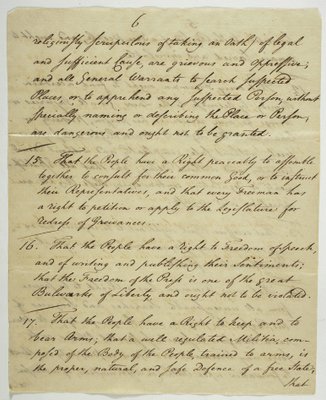 6
religiously scrupulous of taking an Oath) of legal
and sufficient Cause, are grievous and oppressive;
and all General Warrants to search suspected
Places, or to apprehend any suspected Person, without
specially naming or describing the Place or Person,
are dangerous and ought not to be granted.
15. That the People have a Right peaceably to assemble
together to consult for their common Good, or to instruct
their Representatives, and that every Freeman has
a right to petition or apply to the Legislature for
redress of Grievances.
16. That the People have a right to Freedom of Speech,
and of writing and publishing their Sentiments;
that the Freedom of the Press is one of the great
Bulwarks of Liberty, and ought not to be violated.
17. That the People have a Right to keep and to
bear Arms; that a well regulated Militia, com-
posed of the Body of the People, trained to arms, is
the proper, natural, and safe Defence of a free State;
that